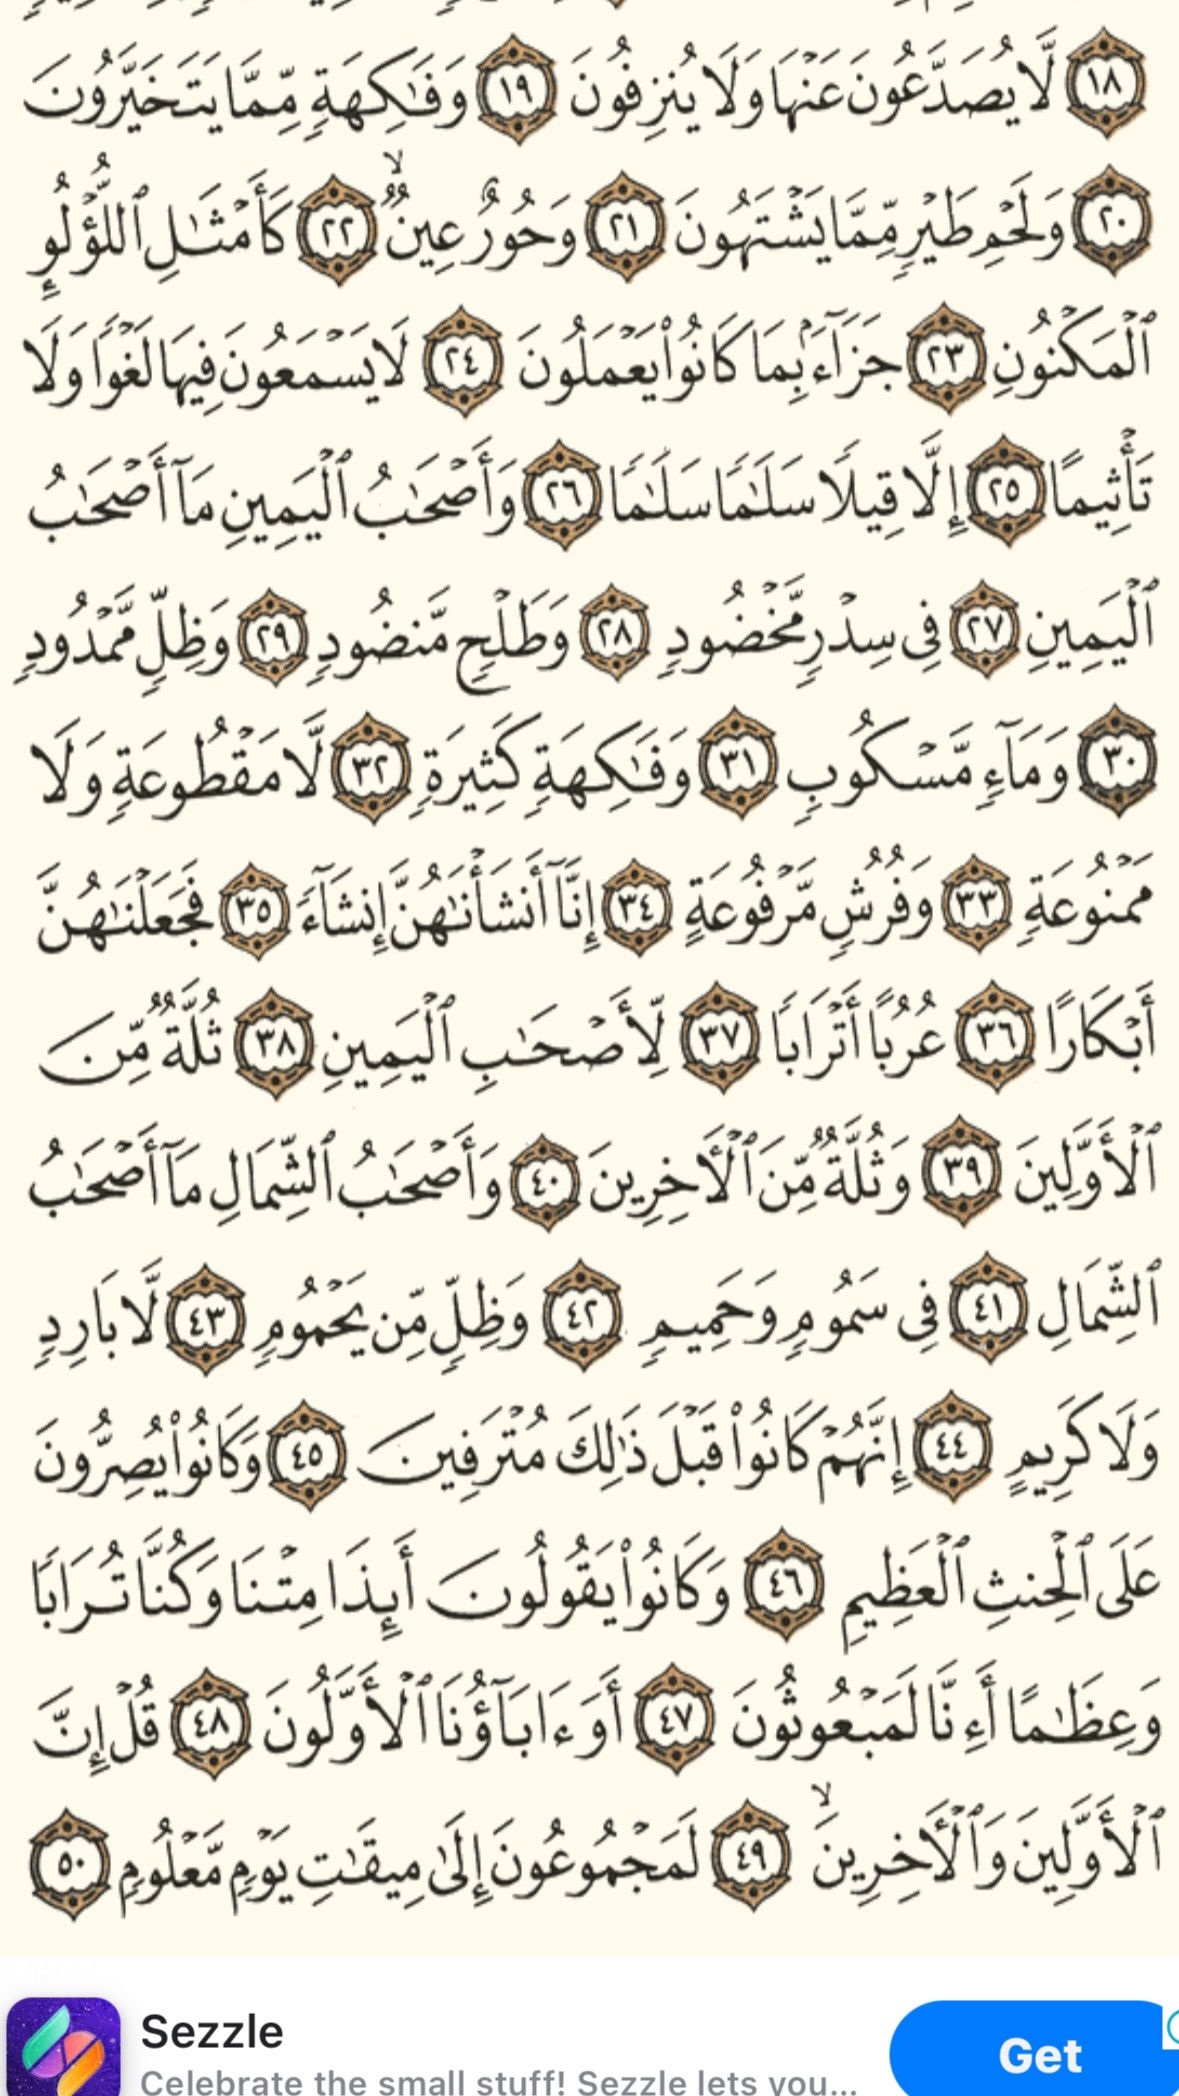 ١٨ لَّا يُصَدَّعُونَ عَنْهَا وَلَا يُنزِفُونَ ١٩ وَفَـٰكِهَةٍ مِّمَّا يَتَخَيَّرُونَ
٢٠ وَلَحْمِ طَيْرٍ مِّمَّا يَشْتَهُونَ ٢١ وَحُورٌ عِينٌ ۙ ٢٢ كَأَمْثَـٰلِ ٱللُّؤْلُؤِ
ٱلْمَكْنُونِ ٢٣ جَزَآءَۢ بِمَا كَانُوا۟ يَعْمَلُونَ ٢٤ لَا يَسْمَعُونَ فِيهَا لَغْوًا وَلَا
تَأْثِيمًا ٢٥ إِلَّا قِيلًا سَلَـٰمًا سَلَـٰمًا ٢٦ وَأَصْحَـٰبُ ٱلْيَمِينِ مَآ أَصْحَـٰبُ
ٱلْيَمِينِ ٢٧ فِى سِدْرٍ مَّخْضُودٍ ٢٨ وَطَلْحٍ مَّنضُودٍ ٢٩ وَظِلٍّ مَّمْدُودٍ
٣٠ وَمَآءٍ مَّسْكُوبٍ ٣١ وَفَـٰكِهَةٍ كَثِيرَةٍ ٣٢ لَّا مَقْطُوعَةٍ وَلَا
مَمْنُوعَةٍ ٣٣ وَفُرُشٍ مَّرْفُوعَةٍ ٣٤ إِنَّآ أَنشَأْنَـٰهُنَّ إِنشَآءً ٣٥ فَجَعَلْنَـٰهُنَّ
أَبْكَارًا ٣٦ عُرُبًا أَتْرَابًا ٣٧ لِّأَصْحَـٰبِ ٱلْيَمِينِ ٣٨ ثُلَّةٌ مِّنَ
ٱلْأَوَّلِينَ ٣٩ وَثُلَّةٌ مِّنَ ٱلْـَٔاخِرِينَ ٤٠ وَأَصْحَـٰبُ ٱلشِّمَالِ مَآ أَصْحَـٰبُ
ٱلشِّمَالِ ٤١ فِى سَمُومٍ وَحَمِيمٍ ٤٢ وَظِلٍّ مِّن يَحْمُومٍ ٤٣ لَّا بَارِدٍ
وَلَا كَرِيمٍ ٤٤ إِنَّهُمْ كَانُوا۟ قَبْلَ ذَٰلِكَ مُتْرَفِينَ ٤٥ وَكَانُوا۟ يُصِرُّونَ
عَلَى ٱلْحِنثِ ٱلْعَظِيمِ ٤٦ وَكَانُوا۟ يَقُولُونَ أَئِذَا مِتْنَا وَكُنَّا تُرَابًا
وَعِظَـٰمًا أَءِنَّا لَمَبْعُوثُونَ ٤٧ أَوَءَابَآؤُنَا ٱلْأَوَّلُونَ ٤٨ قُلْ إِنَّ
ٱلْأَوَّلِينَ وَٱلْـَٔاخِرِينَ ۙ ٤٩ لَمَجْمُوعُونَ إِلَىٰ مِيقَـٰتِ يَوْمٍ مَّعْلُومٍ ٥٠
Sezzle
Get
Celebrate the small stuff! Sezzle lets you...